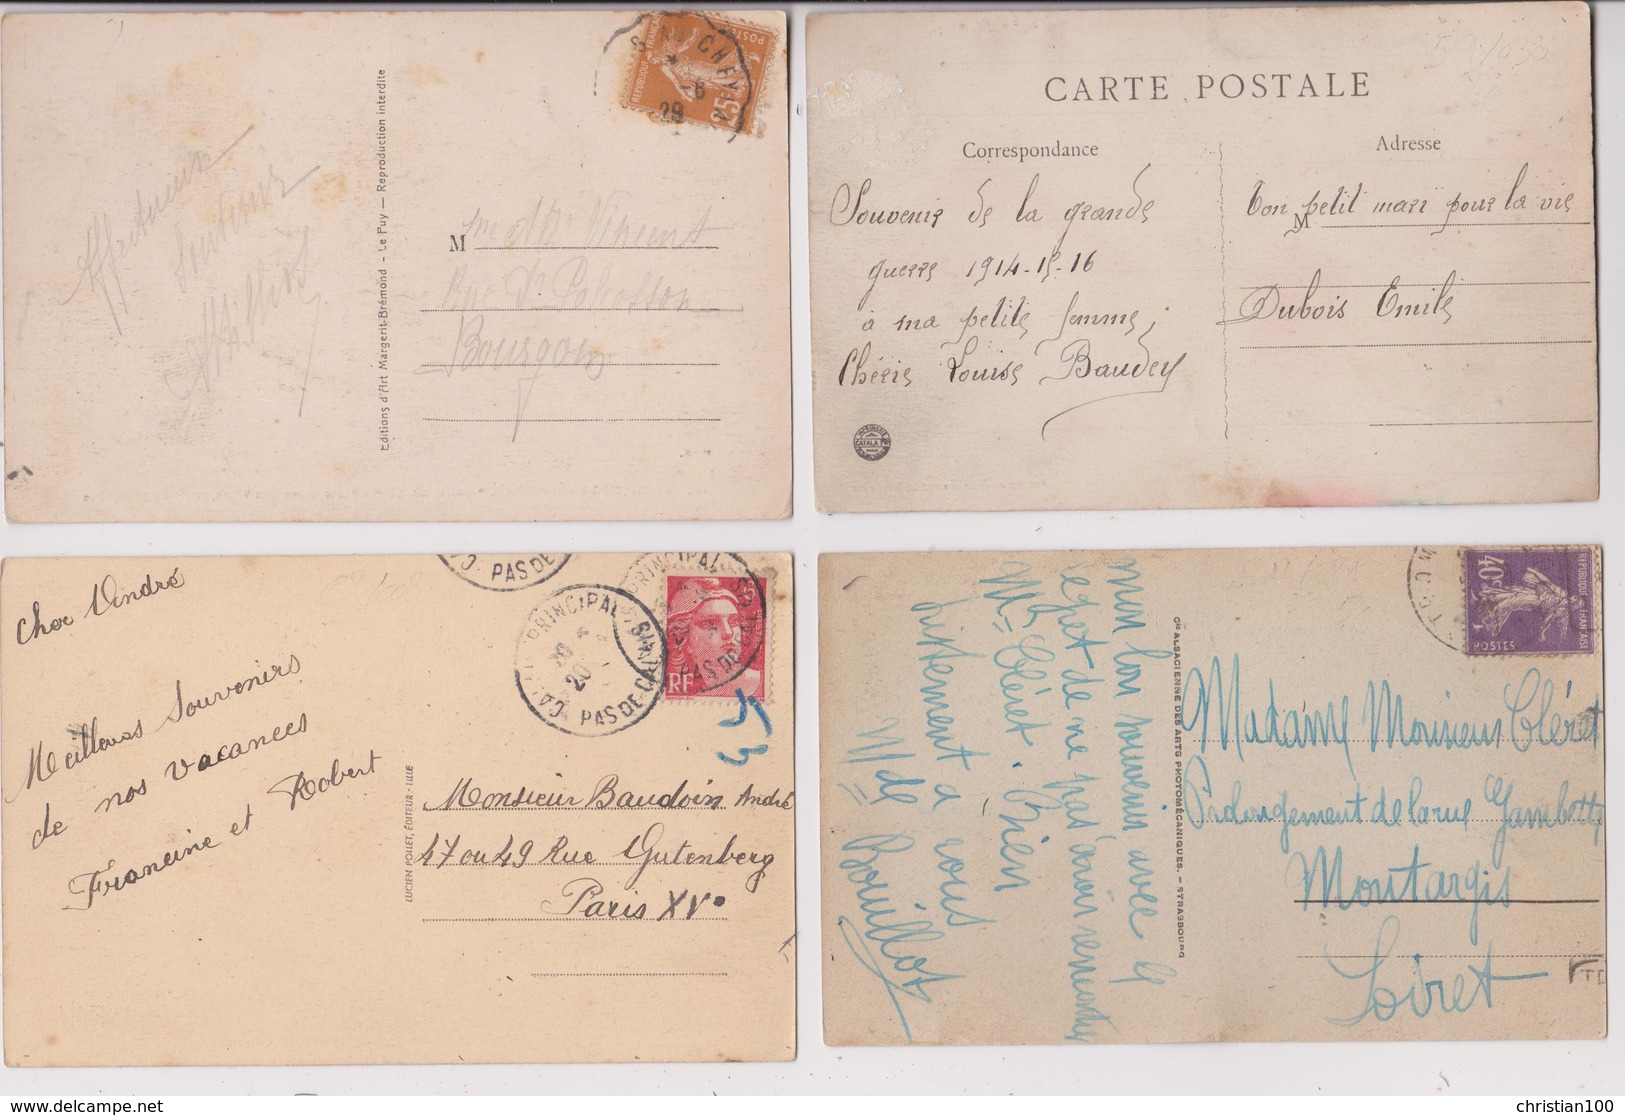 POSTES
25c
29
Affectueux
Editions d'Art Margerit-Brémond - Le Puy — Reproduction interdite
M
Vincent
Bourgoin
CARTE POSTALE
Correspondance
Adresse
Souvenir de la grande
guerre 1914-15-16
à ma petite femme,
Chérie Louise Baudey
IMPRIMERIE
CATALA
PARIS
Ton petit mari pour la vie
M
Dubois Emile
Cher André
Meilleurs Souvenirs
de nos vacances
Francine et Robert
LUCIEN POLLET, ÉDITEUR - LILLE
PAS DE
CALAIS PRINCIPAL
20
PAS DE CALAIS
PRINCIPAL
PAS DE
RF
53
Monsieur Baudoin André
47 ou 49 Rue Gutenberg
Paris XVe
mon bon souvenir avec le
regret de ne pas avoir rencontré
Mr Cléret. Bien
tristement à vous
M de Bouillot
Cie ALSACIENNE DES ARTS PHOTOMÉCANIQUES. — STRASBOURG
40c
REPUBLIQUE FRANÇAISE
POSTES
Madame Monsieur Cléret
Prolongement de la rue Gambetta
Montargis
Loiret
christian100